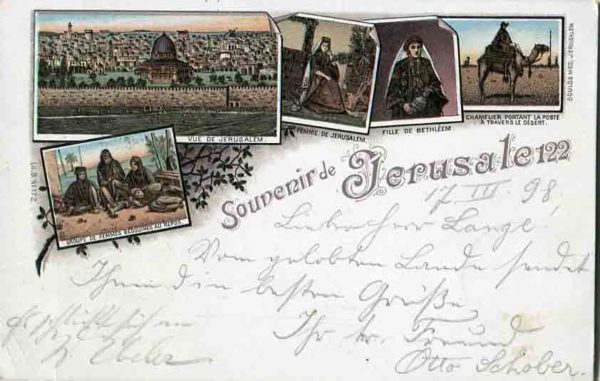 VUE DE JERUSALEM.
FEMME DE JERUSALEM.
FILLE DE BETHLÉEM.
CHAMELIER PORTANT LA POSTE
À TRAVERS LE DÉSERT.
GROUPE DE FEMMES BEDOUINES AU REPOS.
Souvenir de Jerusale122
17 III 98.
Lieber Herr Lange!
Vom gelobten Lande sendet
Ihnen die besten Grüße
Ihr tr. Freund
Otto Schober.
Es schließt sich an